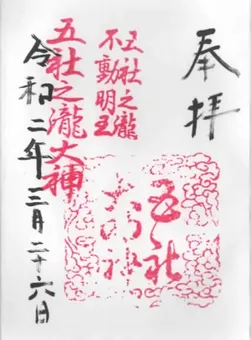 奉拝
五社之瀧
不動明王
五社之瀧大神
五社
令和二年三月二十六日